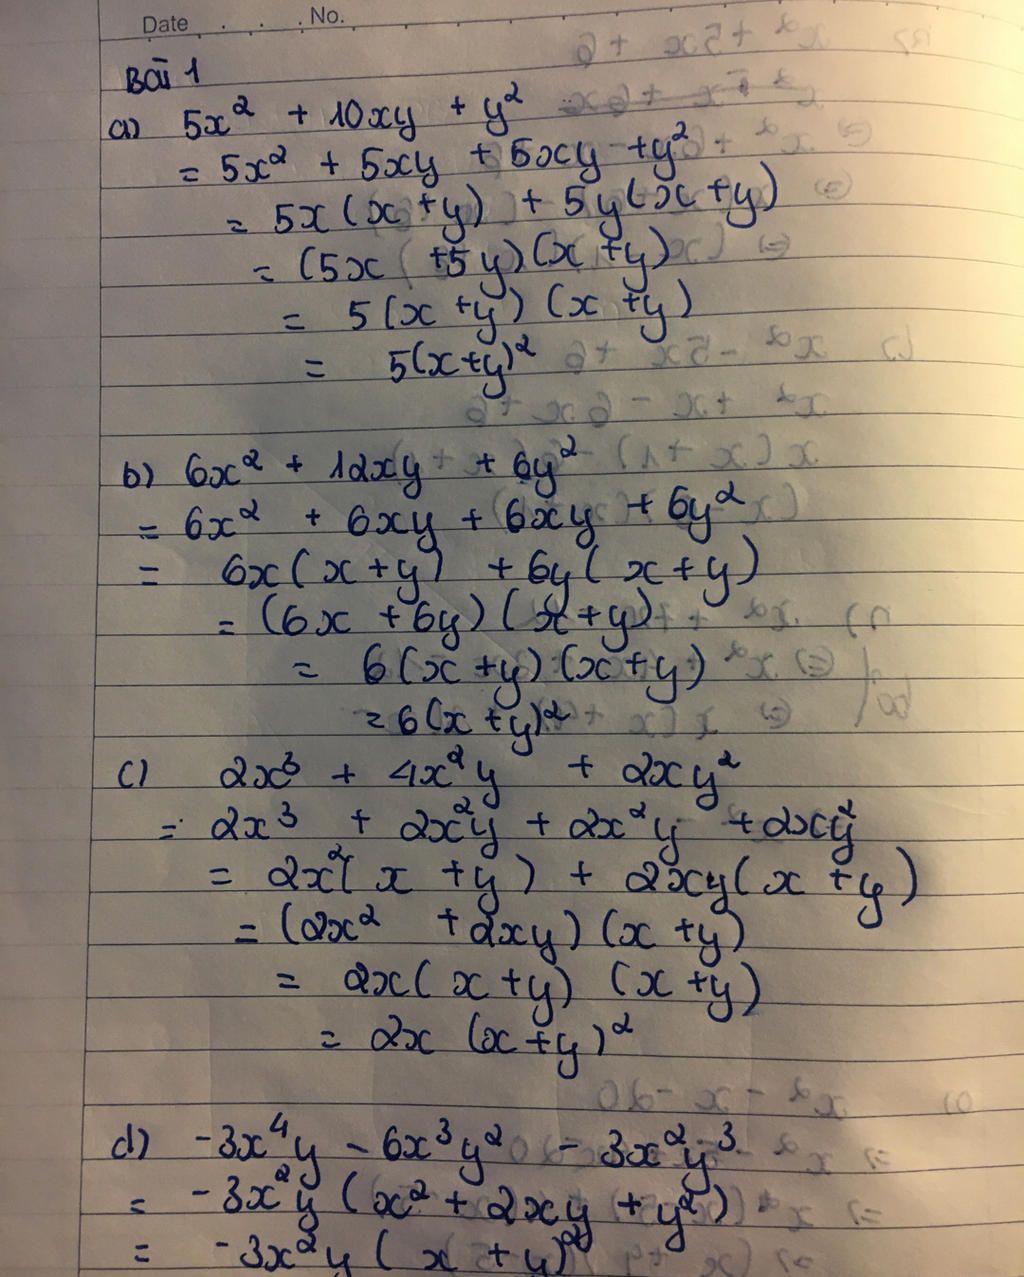 Date . . . . . No. . . . . . .
Bài 1
a) 5x² + 10xy + y²
= 5x² + 5xy + 5xy + y²
= 5x(x+y) + 5y(x+y)
= (5x +5y)(x+y)
= 5(x+y)(x+y)
= 5(x+y)²
b) 6x² + 12xy + 6y²
= 6x² + 6xy + 6xy + 6y²
= 6x(x+y) + 6y(x+y)
= (6x + 6y)(x+y)
= 6(x+y)(x+y)
= 6(x+y)²
c) 2x³ + 4x²y + 2xy²
= 2x³ + 2x²y + 2x²y + 2xy²
= 2x²(x+y) + 2xy(x+y)
= (2x² + 2xy)(x+y)
= 2x(x+y)(x+y)
= 2x(x+y)²
d) -3x⁴y - 6x³y² - 3x²y³
= -3x²y(x² + 2xy + y²)
= -3x²y(x+y)²